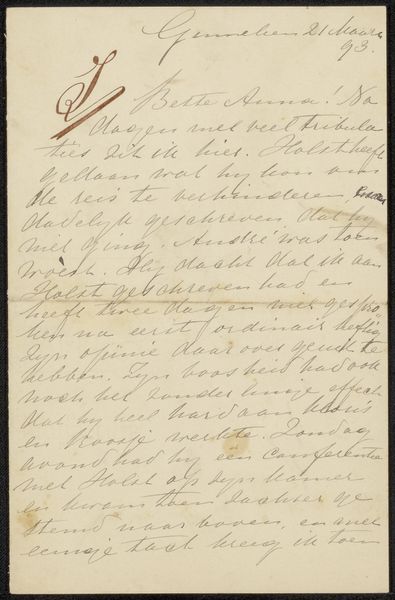 Genneken 21 Maart
93.
Beste Anna! Na
dagen met veel tribula
ties zit ik hier. Holst heeft
gedaan wat hij kon om
de reis te verhinderen,
dadelijk geschreven dat hij
niet ging. André was toen
woest. Hij dacht dat ik aan
Holst geschreven had en
heeft twee dagen niet gespro
ken na eerst ordinair heftig
zijn opinie daar over geuit te
hebben. Zijn boosheid had ook
noch het zonderlinge effect
dat hij heel hard aan
en werkte. Zondag
avond had hij een conferentie
met Holst op zijn kamer
en kwam toen zachter ge
stemd naar boven, en met
eenige tact kreeg ik toen